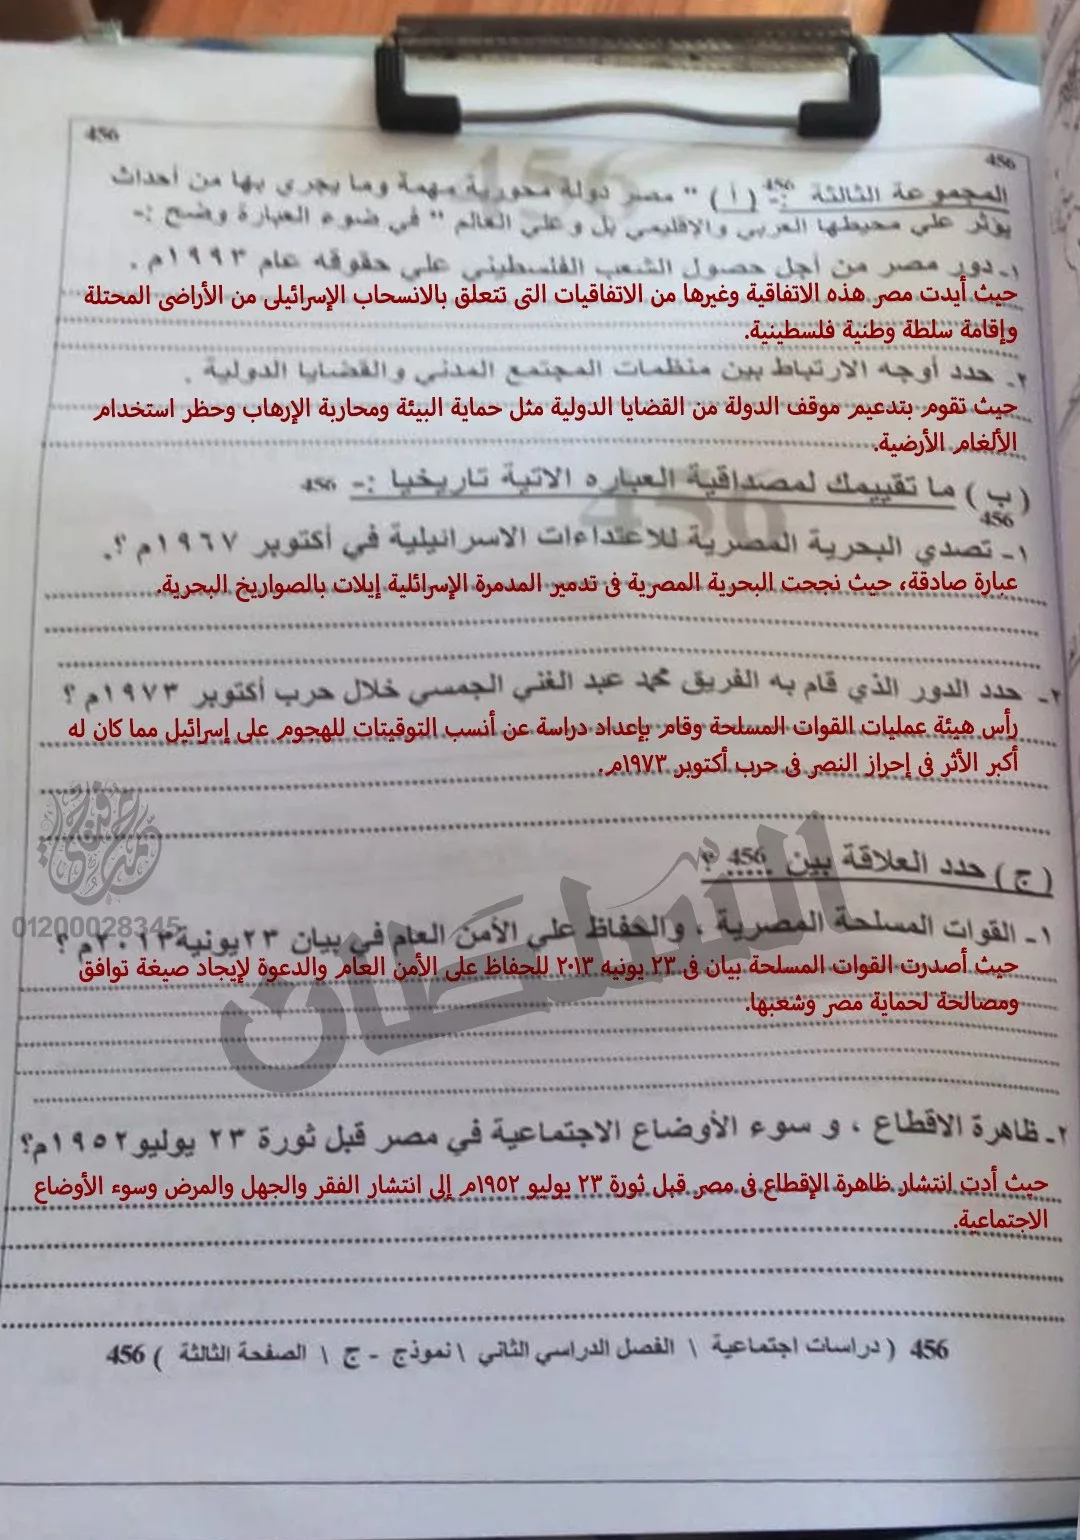 456
456
المجموعة الثالثة 456 :- ( أ ) " مصر دولة محورية مهمة وما يجري بها من أحداث
يؤثر علي محيطها العربي والإقليمي بل وعلي العالم " في ضوء العبارة وضح :-
١- دور مصر من أجل حصول الشعب الفلسطيني علي حقوقه عام ١٩٩٣م .
حيث أيدت مصر هذه الاتفاقية وغيرها من الاتفاقيات التى تتعلق بالانسحاب الإسرائيلى من الأراضى المحتلة
وإقامة سلطة وطنية فلسطينية.
٢- حدد أوجه الارتباط بين منظمات المجتمع المدني والقضايا الدولية .
حيث تقوم بتدعيم موقف الدولة من القضايا الدولية مثل حماية البيئة ومحاربة الإرهاب وحظر استخدام
الألغام الأرضية.
( ب ) ما تقييمك لمصداقية العباره الاتية تاريخيا :- 456
456
١- تصدي البحرية المصرية للاعتداءات الاسرائيلية في أكتوبر ١٩٦٧م ؟.
عبارة صادقة، حيث نجحت البحرية المصرية فى تدمير المدمرة الإسرائلية إيلات بالصواريخ البحرية.
٢- حدد الدور الذي قام به الفريق محمد عبد الغني الجمسي خلال حرب أكتوبر ١٩٧٣م ؟
رأس هيئة عمليات القوات المسلحة وقام بإعداد دراسة عن أنسب التوقيتات للهجوم على إسرائيل مما كان له
أكبر الأثر فى إحراز النصر فى حرب أكتوبر ١٩٧٣م.
( ج ) حدد العلاقة بين 456 ؟
السلطان
01200028345
١- القوات المسلحة المصرية ، والحفاظ علي الأمن العام في بيان ٢٣يونية٢٠١٣م ؟
حيث أصدرت القوات المسلحة بيان فى ٢٣ يونيه ٢٠١٣ للحفاظ على الأمن العام والدعوة لإيجاد صيغة توافق
ومصالحة لحماية مصر وشعبها.
٢- ظاهرة الاقطاع ، و سوء الأوضاع الاجتماعية في مصر قبل ثورة ٢٣ يوليو١٩٥٢م؟
حيث أدت انتشار ظاهرة الإقطاع فى مصر قبل ثورة ٢٣ يوليو ١٩٥٢م إلى انتشار الفقر والجهل والمرض وسوء الأوضاع
الاجتماعية.
456 ( دراسات اجتماعية \ الفصل الدراسي الثاني \ نموذج - ج \ الصفحة الثالثة ) 456